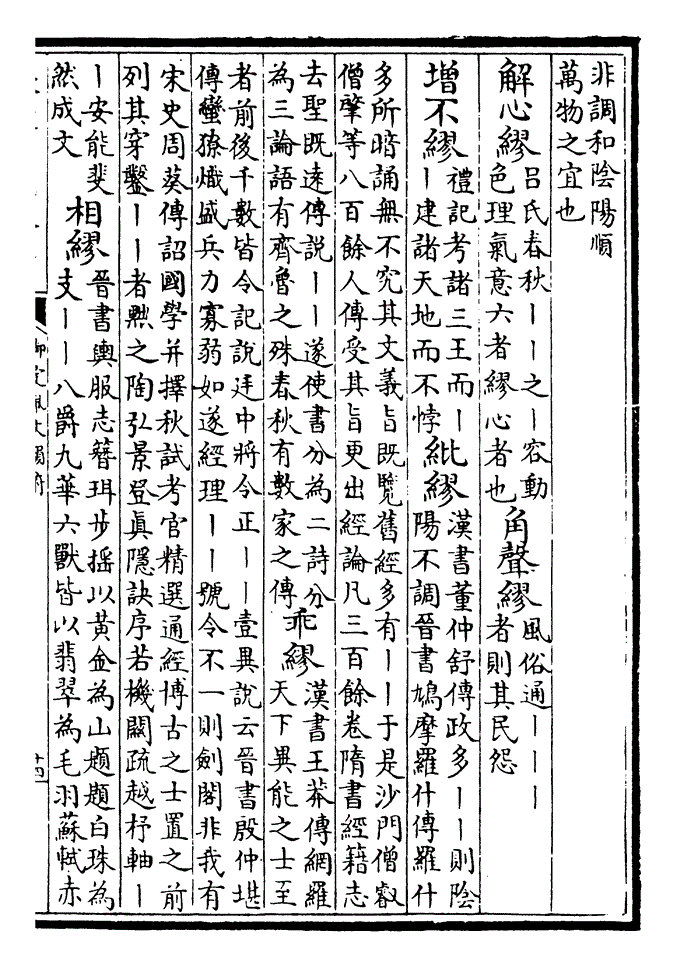 非調和陰陽順
萬物之宜也
解心繆
呂氏春秋——之—容動
色理氣意六者繆心者也
角聲繆
風俗通———
者則其民怨
增不繆
禮記考諸三王而—
—建諸天地而不悖
紕繆
漢書董仲舒傳政多——則陰
陽不調晉書鳩摩羅什傳羅什
多所暗誦無不究其文義旨既覽舊經多有——于是沙門僧叡
僧肇等八百餘人傳受其旨更出經論凡三百餘卷隋書經籍志
去聖既遠傳說——遂使書分為二詩分
為三論語有齊魯之殊春秋有數家之傳
乖繆
漢書王莽傳網羅
天下異能之士至
者前後千數皆令記說廷中將令正——壹異說云晉書殷仲堪
傳蠻獠熾盛兵力寡弱如遂經理——號令不一則劍閣非我有
宋史周葵傳詔國學并擇秋試考官精選通經博古之士置之前
列其穿鑿——者黜之陶弘景登真隱訣序若機關疏越杼軸—
—安能斐
然成文
相繆
晉書輿服志簪珥步搖以黃金為山題題白珠為
支——八爵九華六獸皆以翡翠為毛羽蘇軾赤
十四